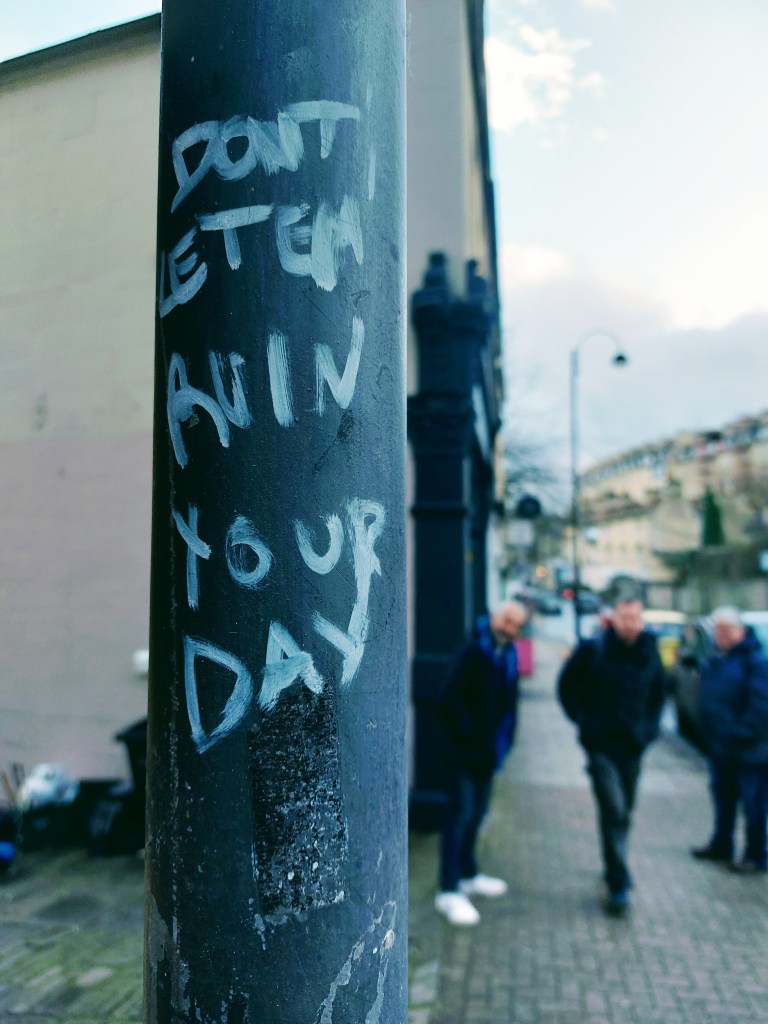 DONT
LET EM
RUIN
YOUR
DAY